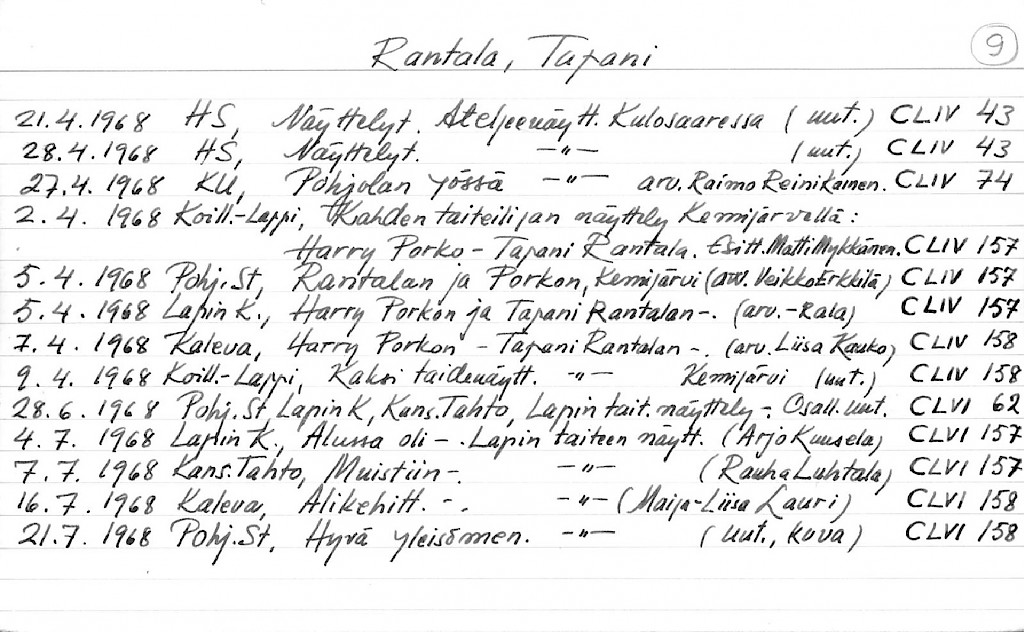 9
Rantala, Tapani
21.4.1968 HS, Näyttelyt. Ateljeenäytt. Kulosaaressa (uut.) CLIV 43
28.4.1968 HS, Näyttelyt. -"- (uut.) CLIV 43
27.4.1968 KU, Pohjolan yössä -"- arv. Raimo Reinikainen. CLIV 74
2.4.1968 Koill.-Lappi, Kahden taiteilijan näyttely Kemijärvellä:
Harry Porko - Tapani Rantala. Esitt. Matti Mykkänen. CLIV 157
5.4.1968 Pohj.St, Rantalan ja Porkon, Kemijärvi (arv. Veikko Erkkilä) CLIV 157
5.4.1968 Lapin K., Harry Porkon ja Tapani Rantalan -. (arv. -Rala) CLIV 157
7.4.1968 Kaleva, Harry Porkon - Tapani Rantalan -. (arv. Liisa Kauko) CLIV 158
9.4.1968 Koill.-Lappi, Kaksi taidenäytt. -"- Kemijärvi (uut.) CLIV 158
28.6.1968 Pohj.St, Lapin K, Kans.Tahto, Lapin tait. näyttely - Osall. uut. CLVI 62
4.7.1968 Lapin K., Alussa oli - . Lapin taiteen näytt. (Arjo Kuusela) CLVI 157
7.7.1968 Kans.Tahto, Muistiin -. -"- (Rauha Luhtala) CLVI 157
16.7.1968 Kaleva, Alikehitt. -. -"- (Maija-Liisa Lauri) CLVI 158
21.7.1968 Pohj.St, Hyvä yleisömen. -"- (uut., kuva) CLVI 158